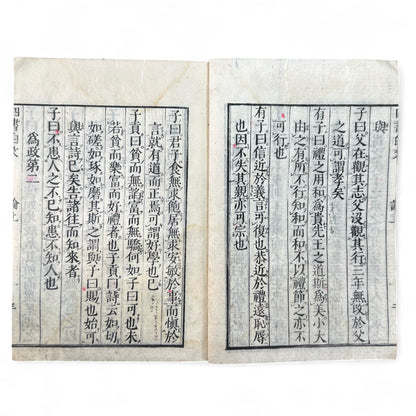 與
子曰父在觀其志父沒觀其行三年無改於父
之道可謂孝矣
有子曰禮之用和為貴先王之道斯為美小大
由之有所不行知和而和不以禮節之亦不
可行也
有子曰信近於義言可復也恭近於禮遠恥辱
也因不失其親亦可宗也
子曰君子食無求飽居無求安敏於事而慎於
言就有道而正焉可謂好學也已
子貢曰貧而無諂富而無驕何如子曰可也未
若貧而樂富而好禮者也子貢曰詩云如切
如磋如琢如磨其斯之謂與子曰賜也始可
與言詩已矣告諸往而知來者
子曰不患人之不己知患不知人也
為政第二